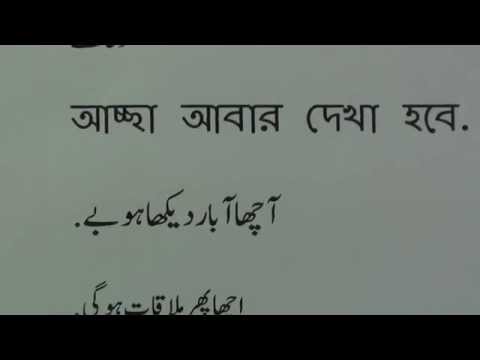 আচ্ছা আবার দেখা হবে.
آچھا آبار دیکھا ہوبے.
اچھا پھر ملاقات ہوگی.